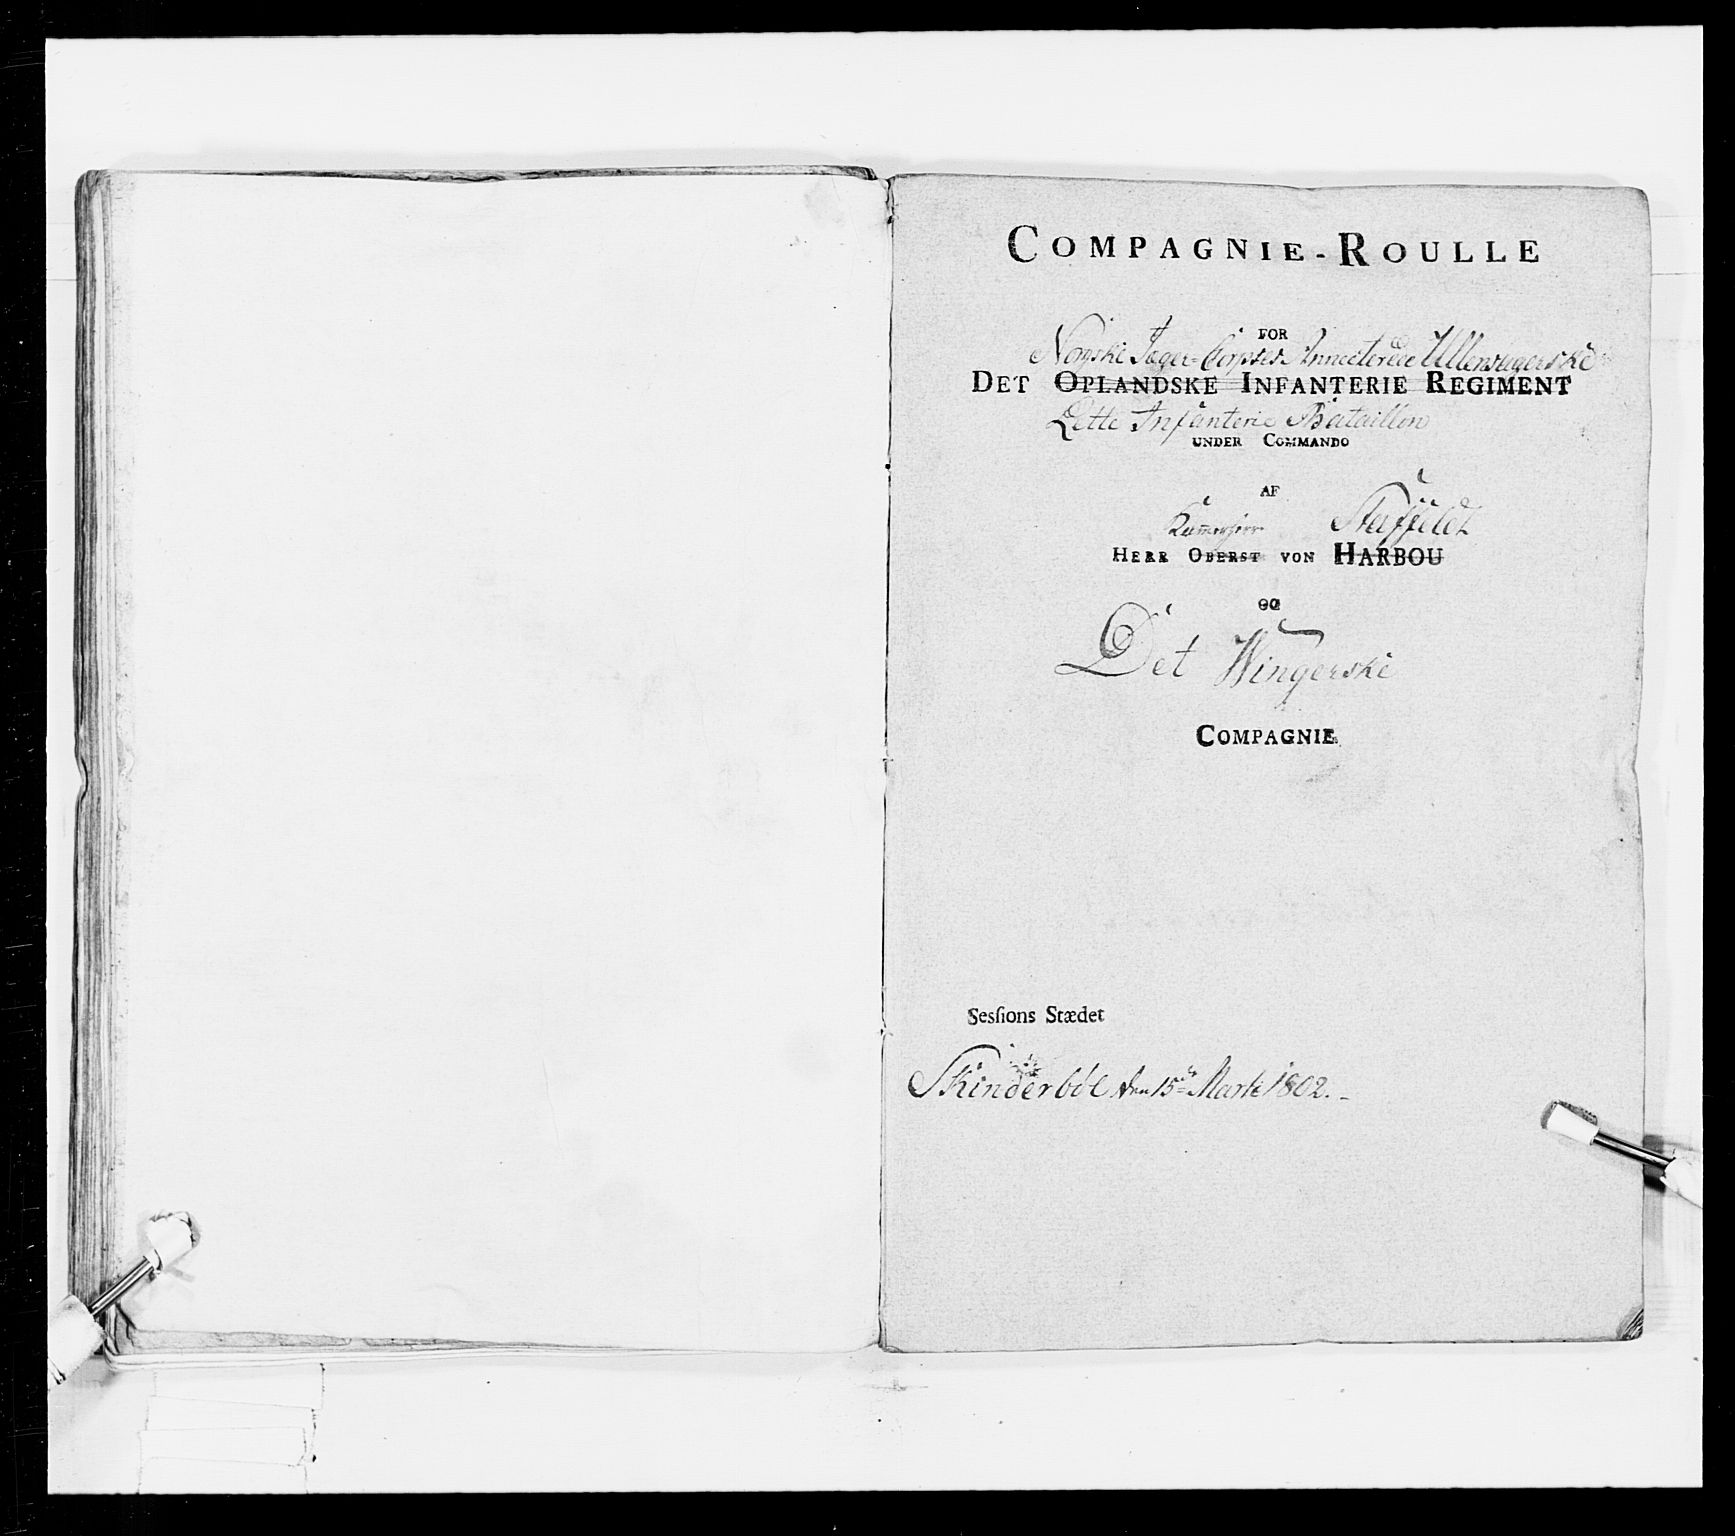 COMPAGNIE-ROULLE
FOR
Norske Jæger-Corpsets Annecterede Ullensagerske
DET OPLANDSKE INFANTERIE REGIMENT
Lette Infanterie Bataillon
UNDER COMMANDO
AF
Kammerherr Staffeldt
HERR OBERST VON HARBOU
OG
Det Wingerske
COMPAGNIE.
Sesſions Stædet
Skinderböl den 15de Marti 1802.-